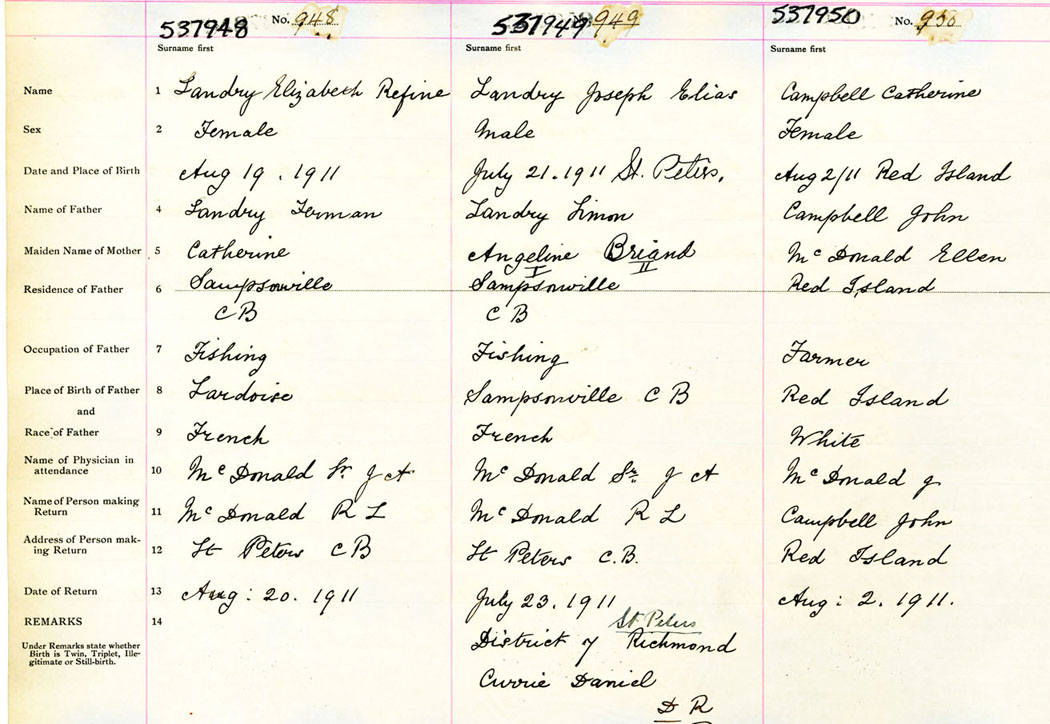 537948 No. 948 537949 949 537950 No. 950
Surname first Surname first Surname first
Name 1 Landry Elizabeth Refine Landry Joseph Elias Campbell Catherine
Sex 2 Female Male Female
Date and Place of Birth 3 Aug 19 . 1911 July 21. 1911 St. Peters, Aug 2/11 Red Island
Name of Father 4 Landry Ferman Landry Simon Campbell John
Maiden Name of Mother 5 Catherine Angeline Briand Mc Donald Ellen
I II
Residence of Father 6 Sampsonville Sampsonville Red Island
C B C B
Occupation of Father 7 Fishing Fishing Farmer
Place of Birth of Father 8 Lardoise Sampsonville C B Red Island
and
Race of Father 9 French French White
Name of Physician in
attendance 10 Mc Donald Sr. J A Mc Donald Sr. J A Mc Donald J
Name of Person making
Return 11 Mc Donald R L Mc Donald R L Campbell John
Address of Person mak-
ing Return 12 St Peters C B St Peters C.B. Red Island
Date of Return 13 Aug: 20. 1911 July 23. 1911 Aug: 2. 1911.
REMARKS 14 St Peters
Under Remarks state whether
Birth is Twin, Triplet, Ille-
gitimate or Still-birth.
District of Richmond
Currie Daniel
D R